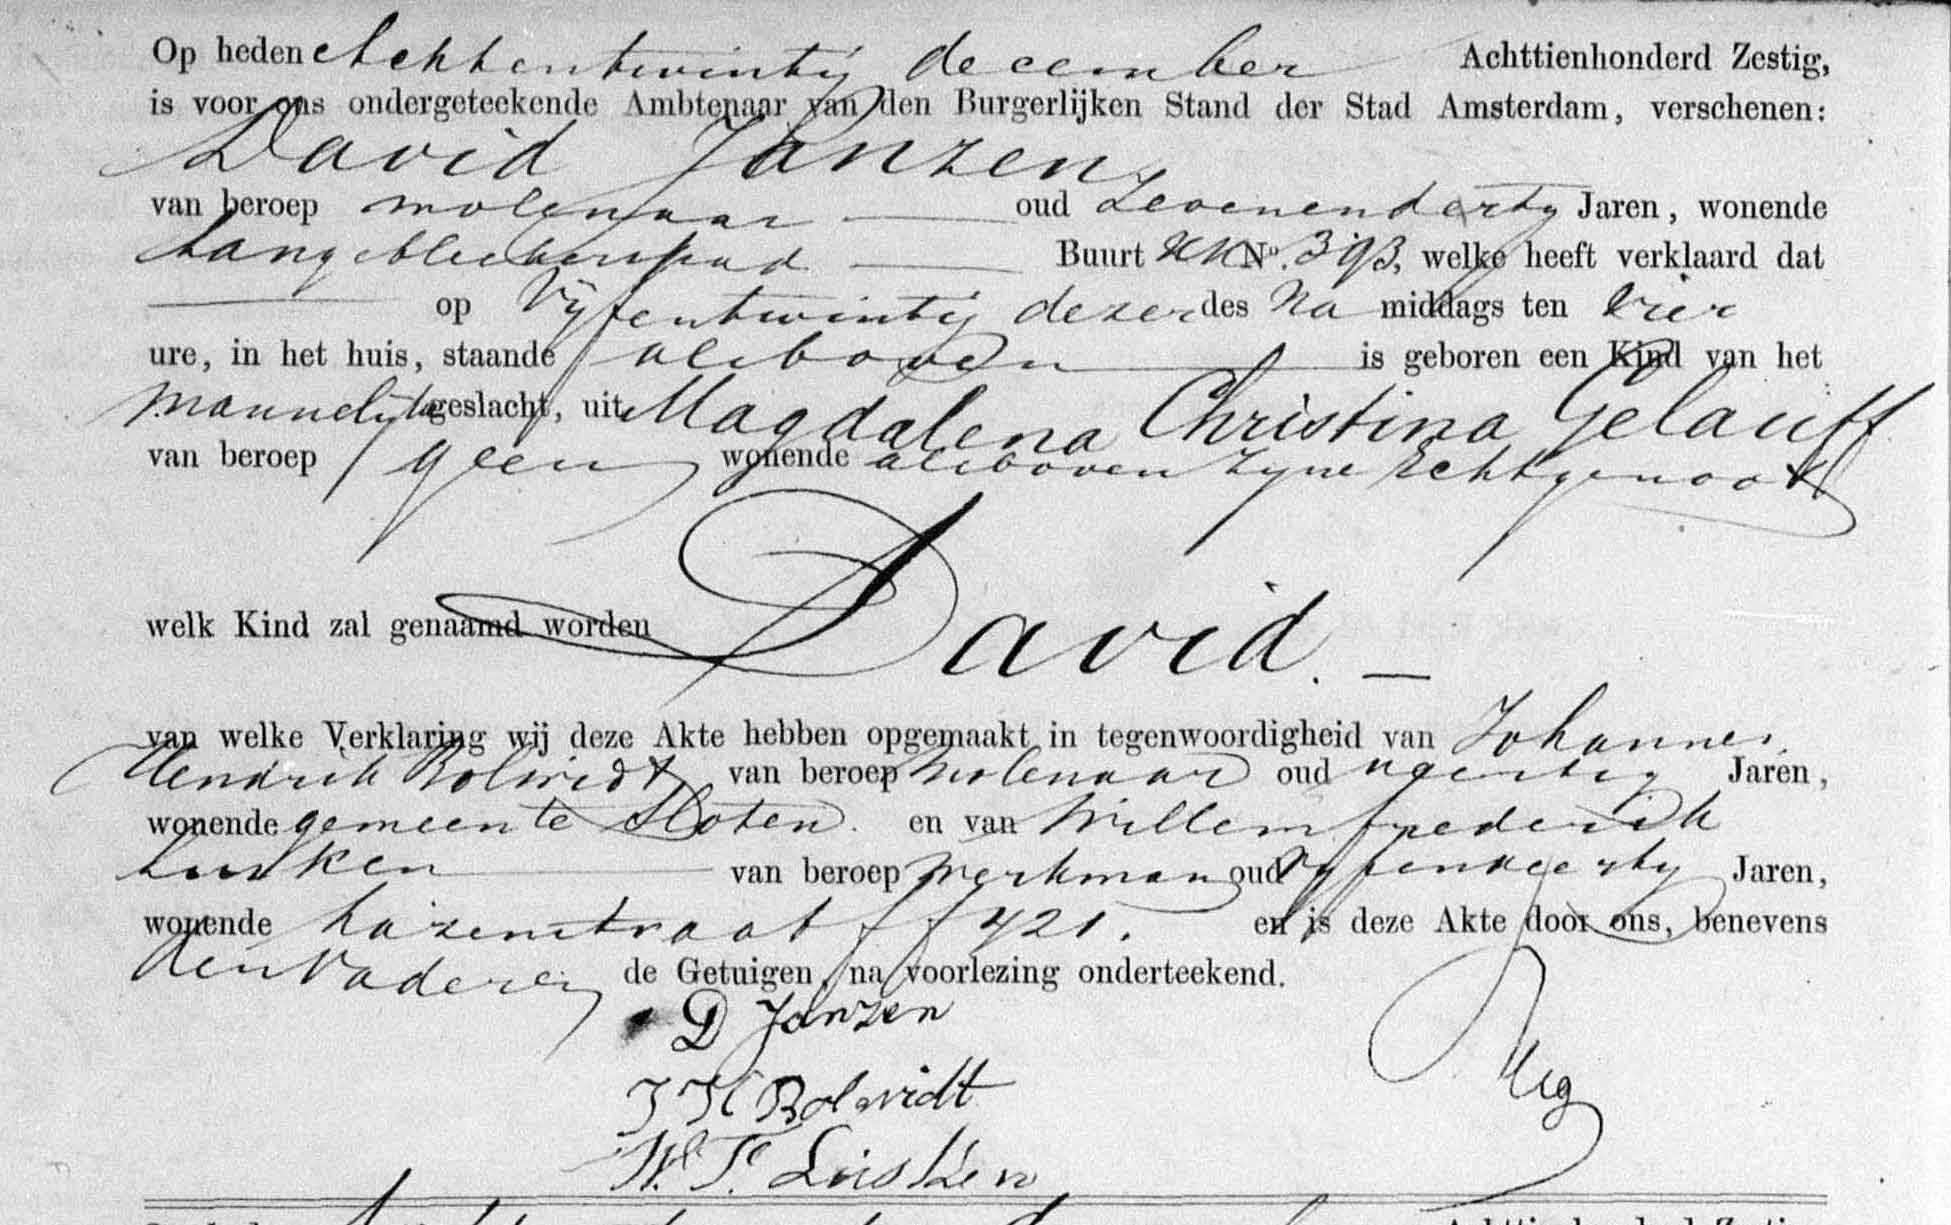 Op heden Achtentwintig december Achttienhonderd Zestig,
is voor ons ondergeteekende Ambtenaar van den Burgerlijken Stand der Stad Amsterdam, verschenen:
David Janzen,
van beroep molenaar oud Zevenendertig Jaren, wonende
Langebleekerspad Buurt KK No. 393, welke heeft verklaard dat
op Vyfentwintig dezer des Na middags ten Vier
ure, in het huis, staande alsboven is geboren een Kind van het
Mannelijk geslacht, uit Magdalena Christina Gelauff
van beroep geen wonende alsboven zyne Echtgenoot
welk Kind zal genaamd worden David. —
van welke Verklaring wij deze Akte hebben opgemaakt in tegenwoordigheid van Johannes
Hendrik Bolwidt van beroep Molenaar oud Jaren,
wonende gemeente Sloten. en van Willem frederik
Lusken van beroep Werkman oud Vyfendertig Jaren,
wonende Lazenstraat ff 421. en is deze Akte door ons, benevens
den Vader en de Getuigen, na voorlezing onderteekend.
D Janzen
J H Bolwidt
W. F. Lüsken
Achttienhonderd Zestig,